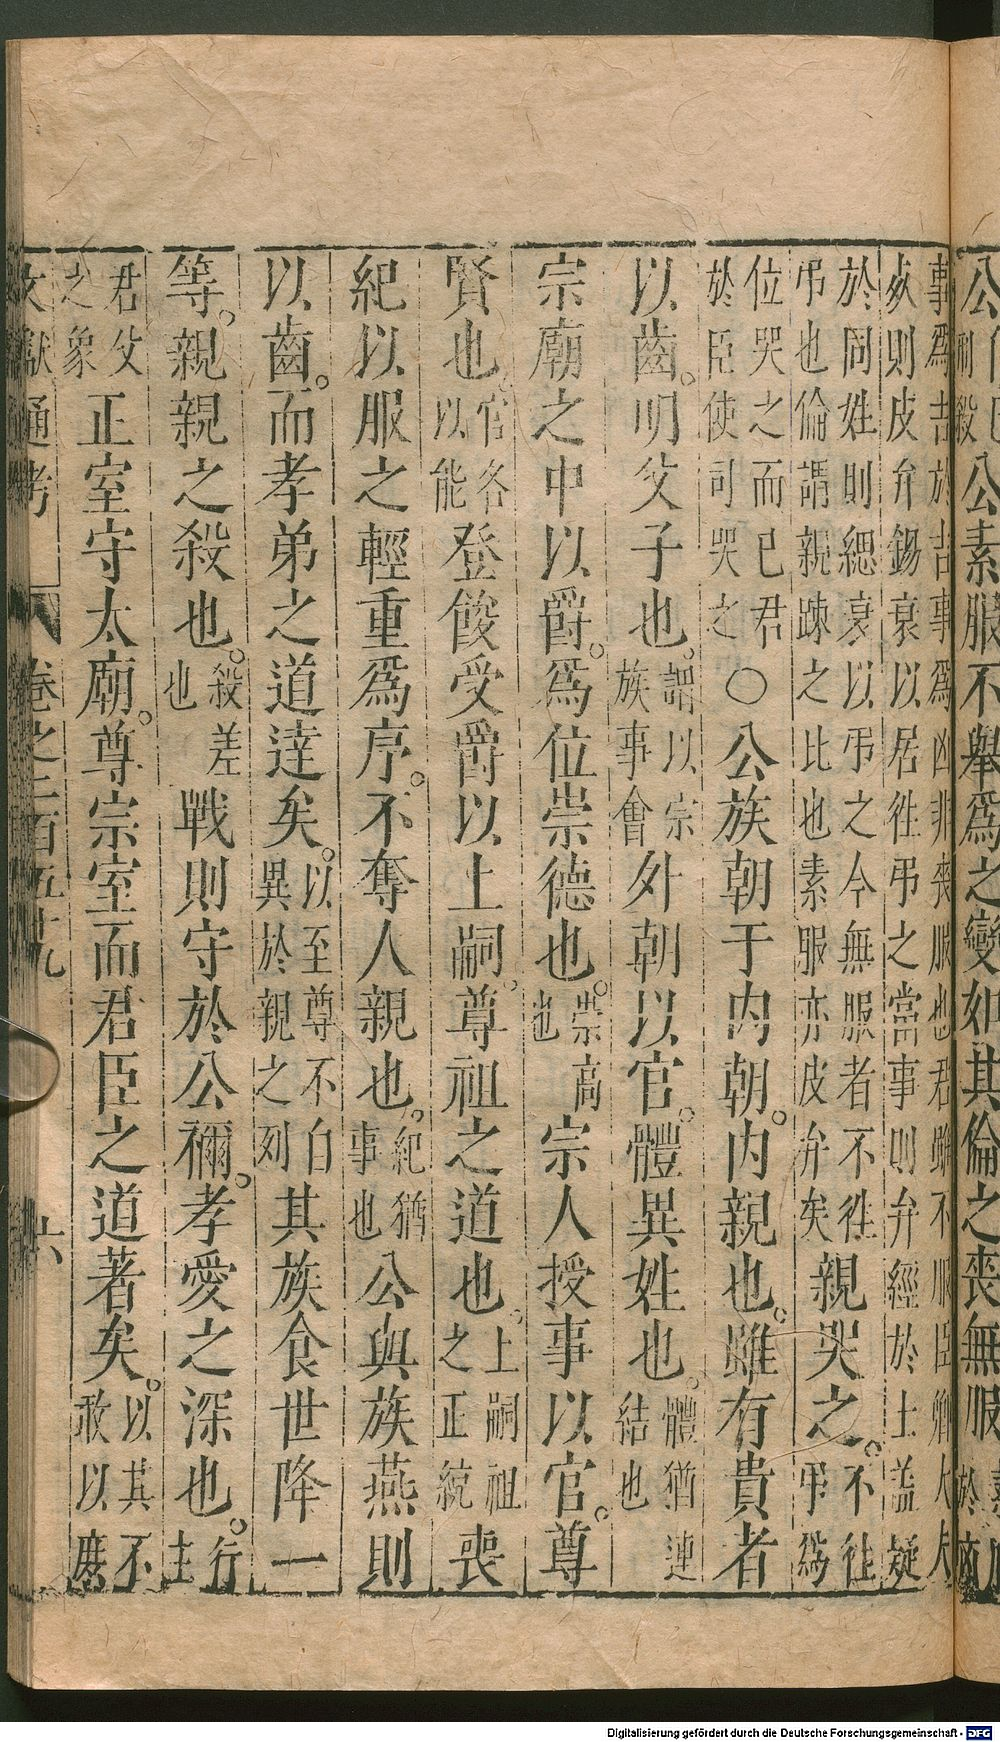 公素服不舉爲之變如其倫之喪無服
事爲吉於吉事爲凶非喪服也君雖不服臣卿大夫
死則皮弁錫衰以居徃弔之當事則弁絰於士蓋疑
於同姓則緦衰以弔之今無服者不徃
弔也倫謂親疎之比也素服亦皮弁矣
親哭之。不徃
弔爲
位哭之而已君
於臣使司哭之
○公族朝于內朝。內親也。雖有貴者
以齒。明父子也。謂以宗
族事會
外朝以官。體異姓也。體猶連
結也
宗廟之中以爵。爲位崇德也。崇高
也
宗人授事以官。尊
賢也。官各
以能
登餕受爵以上嗣。尊祖之道也。上嗣祖
之正統
喪
紀以服之輕重爲序。不奪人親也。紀猶
事也
公與族燕則
以齒。而孝弟之道達矣。以至尊不自
異於親之列
其族食世降一
等。親親之殺也。殺差
也
戰則守於公禰。孝愛之深也。行
主
君父
之象
正室守太廟。尊宗室而君臣之道著矣。以其不
敢以庶
文獻通考 卷之二百五十九 六
Digitalisierung gefördert durch die Deutsche Forschungsgemeinschaft - DFG